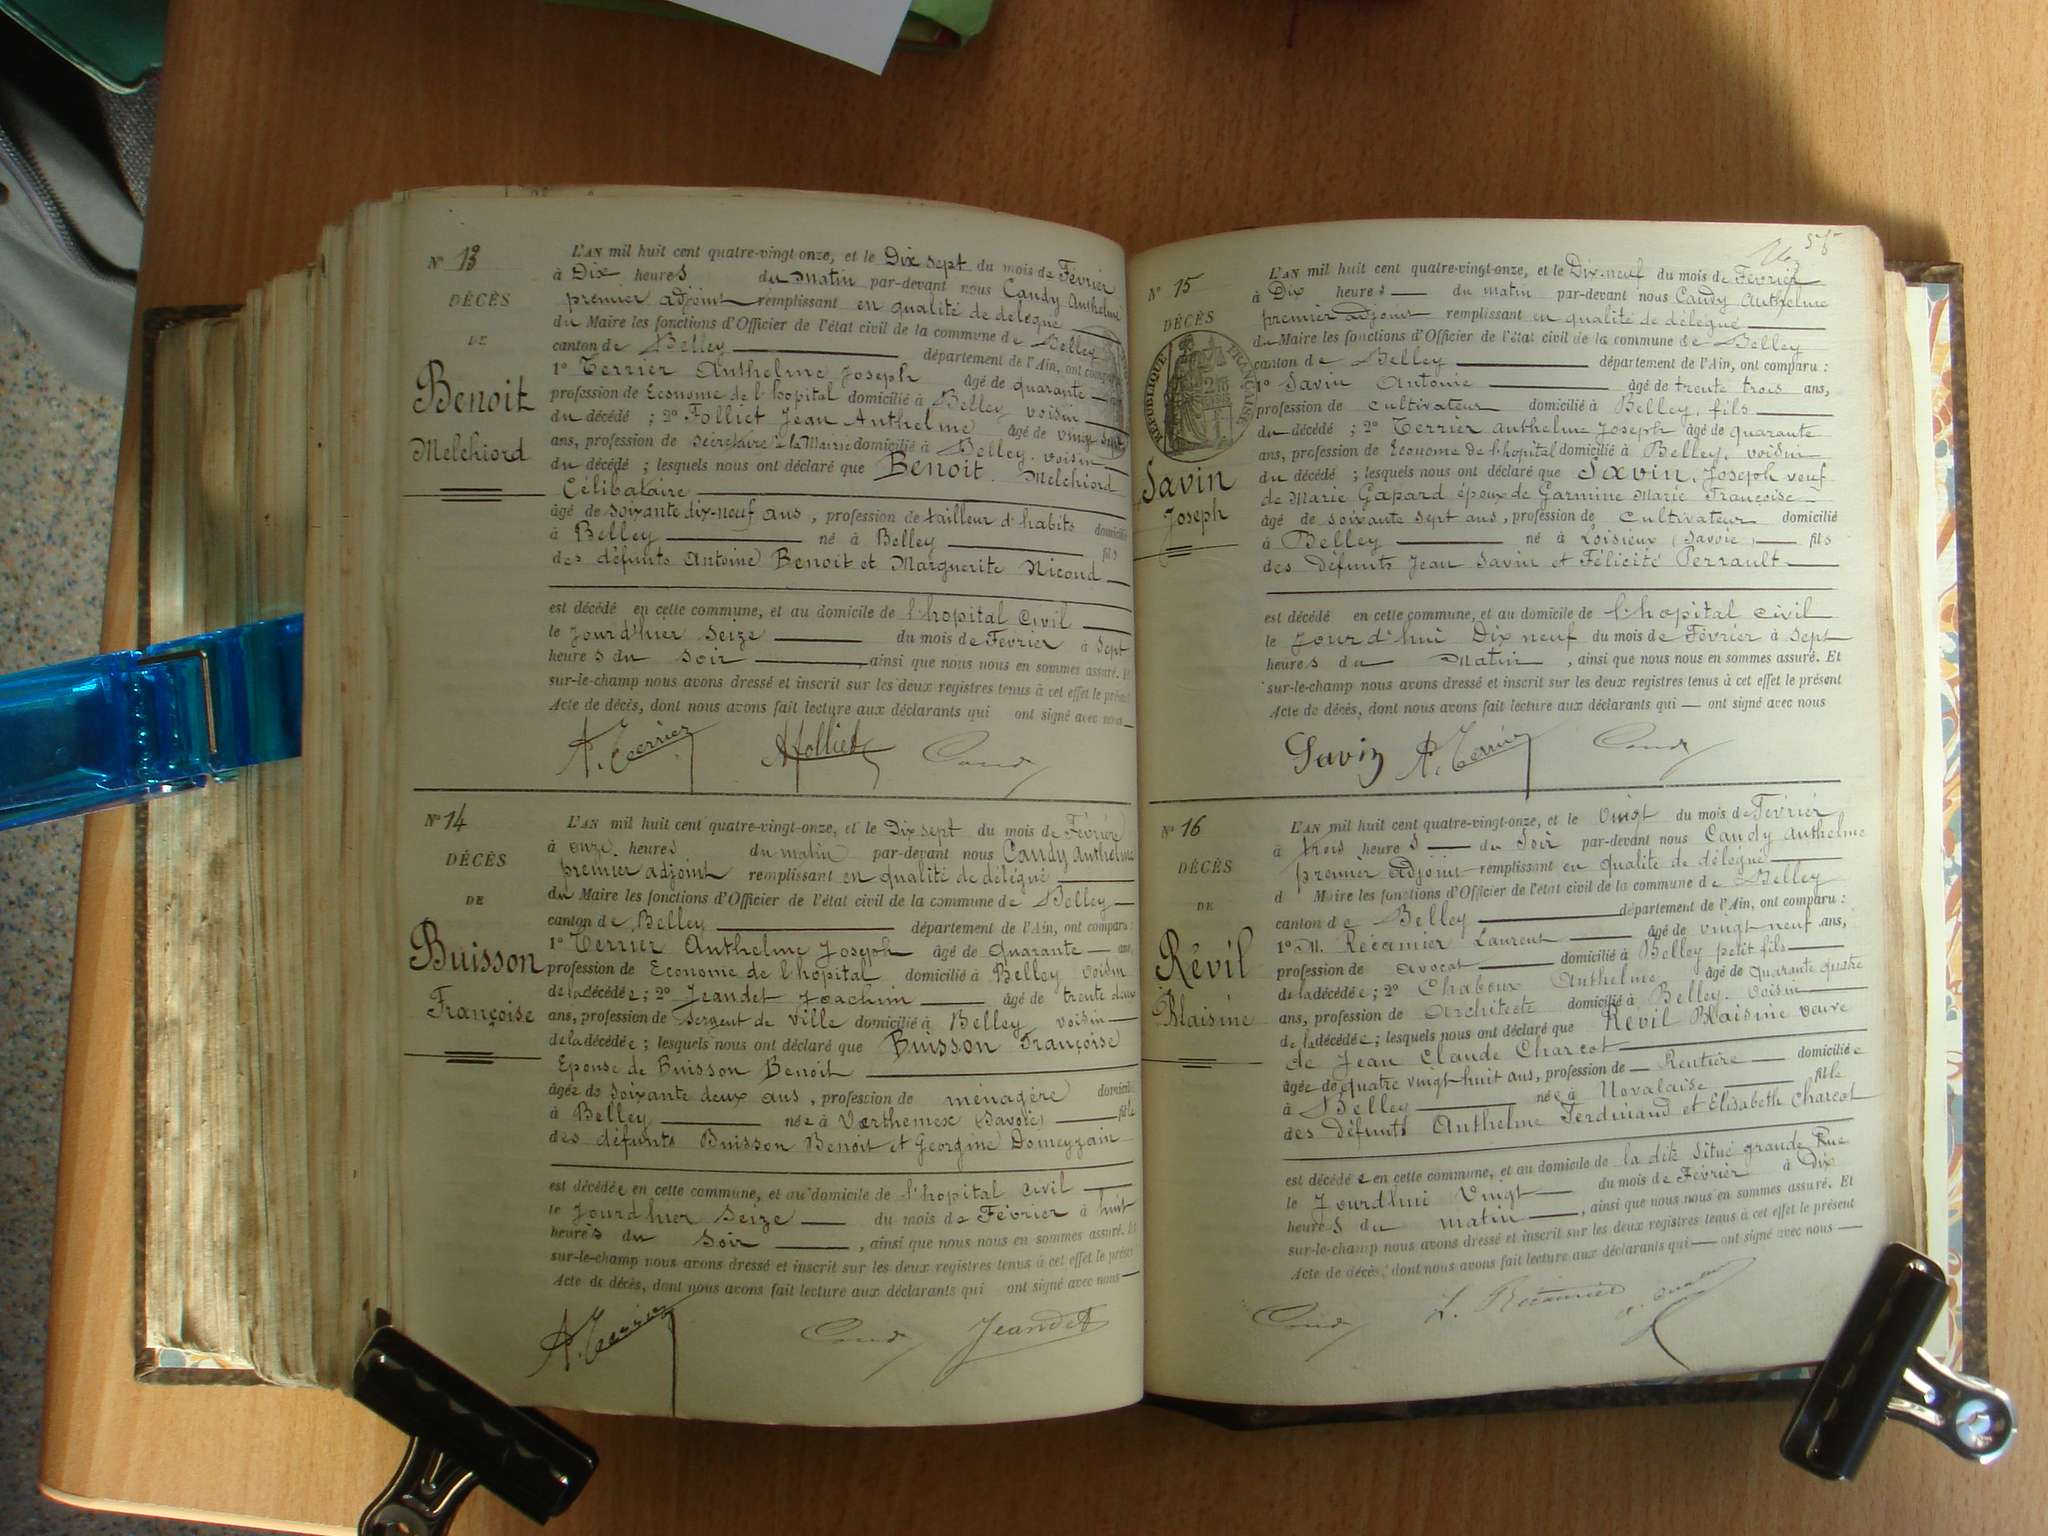 N° 13
DÉCÈS
DE
Benoit
Melchiord
L'AN mil huit cent quatre-vingt-onze, et le Dix sept du mois de Février
à Dix heures du matin par-devant nous Candy Anthelme
premier adjoint remplissant en qualité de délégué
du Maire les fonctions d'Officier de l'état civil de la commune de Belley
canton de Belley département de l'Ain, ont comparu
1° Terrier Anthelme Joseph âgé de quarante
profession de Econome de l'hopital domicilié à Belley voisin
du décédé ; 2° Folliet Jean Anthelme âgé de vingt sept
ans, profession de secrétaire à la Mairie domicilié à Belley, voisin
du décédé ; lesquels nous ont déclaré que Benoit Melchiord
Célibataire
âgé de soixante dix-neuf ans, profession de tailleur d'habits domicilié
à Belley né à Belley fils
des défunts Antoine Benoit et Marguerite Nicoud
est décédé en cette commune, et au domicile de l'hopital civil
le Jourd'hier seize du mois de Février à sept
heures du soir, ainsi que nous nous en sommes assuré. Et
sur-le-champ nous avons dressé et inscrit sur les deux registres tenus à cet effet le présent
Acte de décès, dont nous avons fait lecture aux déclarants qui ont signé avec nous
A. Terrier Afolliet Candy
N° 14
DÉCÈS
DE
Buisson
Françoise
L'AN mil huit cent quatre-vingt-onze, et le Dix sept du mois de Février
à onze heures du matin par-devant nous Candy Anthelme
premier adjoint remplissant en qualité de délégué
du Maire les fonctions d'Officier de l'état civil de la commune de Belley
canton de Belley département de l'Ain, ont comparu :
1° Terrier Anthelme Joseph âgé de Quarante ans,
profession de Econome de l'hopital domicilié à Belley voisin
de la décédée ; 2° Jeandet Joachim âgé de trente deux
ans, profession de sergent de ville domicilié à Belley, voisin
de la décédée ; lesquels nous ont déclaré que Buisson Françoise
Epouse de Buisson Benoit
âgée de soixante deux ans, profession de ménagère domicilié
à Belley née à Verthemex (Savoie) fille
des défunts Buisson Benoit et Georgine Domeyzain
est décédée en cette commune, et au domicile de l'hopital civil
le Jourd'hier seize du mois de Février à huit
heures du soir, ainsi que nous nous en sommes assuré. Et
sur-le-champ nous avons dressé et inscrit sur les deux registres tenus à cet effet le présent
Acte de décès, dont nous avons fait lecture aux déclarants qui ont signé avec nous
A. Terrier Candy Jeandet
N° 15
DÉCÈS
RÉPUBLIQUE FRANÇAISE
Savin
Joseph
L'AN mil huit cent quatre-vingt-onze, et le Dix-neuf du mois de Février
à Dix heures du matin par-devant nous Candy Anthelme
premier adjoint remplissant en qualité de délégué
du Maire les fonctions d'Officier de l'état civil de la commune de Belley
canton de Belley département de l'Ain, ont comparu :
1° Savin Antoine âgé de trente trois ans,
profession de cultivateur domicilié à Belley, fils
du décédé ; 2° Terrier Anthelme Joseph âgé de quarante
ans, profession de Econome de l'hopital domicilié à Belley, voisin
du décédé ; lesquels nous ont déclaré que Savin, Joseph veuf
de Marie Gapard époux de Garmine Marie Françoise
âgé de soixante sept ans, profession de cultivateur domicilié
à Belley né à Loisieux (Savoie) fils
des défunts Jean Savin et Félicité Perrault
est décédé en cette commune, et au domicile de l'hopital civil
le Jourd'hui Dix neuf du mois de Février à sept
heures du Matin, ainsi que nous nous en sommes assuré. Et
sur-le-champ nous avons dressé et inscrit sur les deux registres tenus à cet effet le présent
Acte de décès, dont nous avons fait lecture aux déclarants qui ont signé avec nous
Savin A. Terrier Candy
N° 16
DÉCÈS
DE
Révil
Blaisine
L'AN mil huit cent quatre-vingt-onze, et le vingt du mois de Février
à trois heures du soir par-devant nous Candy Anthelme
premier adjoint remplissant en qualité de délégué
d Maire les fonctions d'Officier de l'état civil de la commune de Belley
canton de Belley département de l'Ain, ont comparu :
1° M. Récamier Laurent âgé de vingt neuf ans,
profession de avocat domicilié à Belley petit fils
de la décédée ; 2° Chaboux Anthelme âgé de quarante quatre
ans, profession de Architecte domicilié à Belley, voisin
de la décédée ; lesquels nous ont déclaré que Révil Blaisine veuve
de Jean Claude Charcot
âgée de quatre vingt huit ans, profession de Rentière domiciliée
à Belley née à Novalaise fille
des défunts Anthelme Ferdinand et Elisabeth Charcot
est décédée en cette commune, et au domicile de la dite situé grande Rue
le Jourd'hui vingt du mois de Février à Dix
heures du matin, ainsi que nous nous en sommes assuré. Et
sur-le-champ nous avons dressé et inscrit sur les deux registres tenus à cet effet le présent
Acte de décès, dont nous avons fait lecture aux déclarants qui ont signé avec nous
Candy L. Récamier